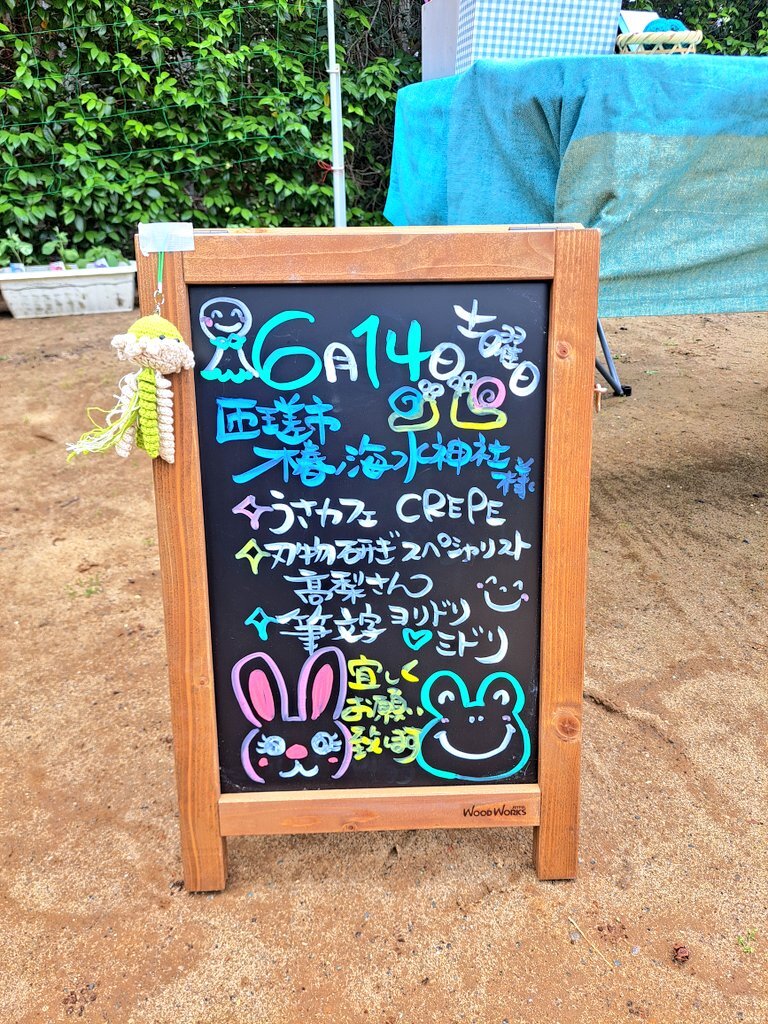 6月14日 土曜日
匝瑳市
椿ノ海水神社様
うさカフェ CREPE
刃物研ぎスペシャリスト
高梨さん
筆文字 ヨリドリ
ミドリ
宜しく
お願い
致します
WOODWORKS